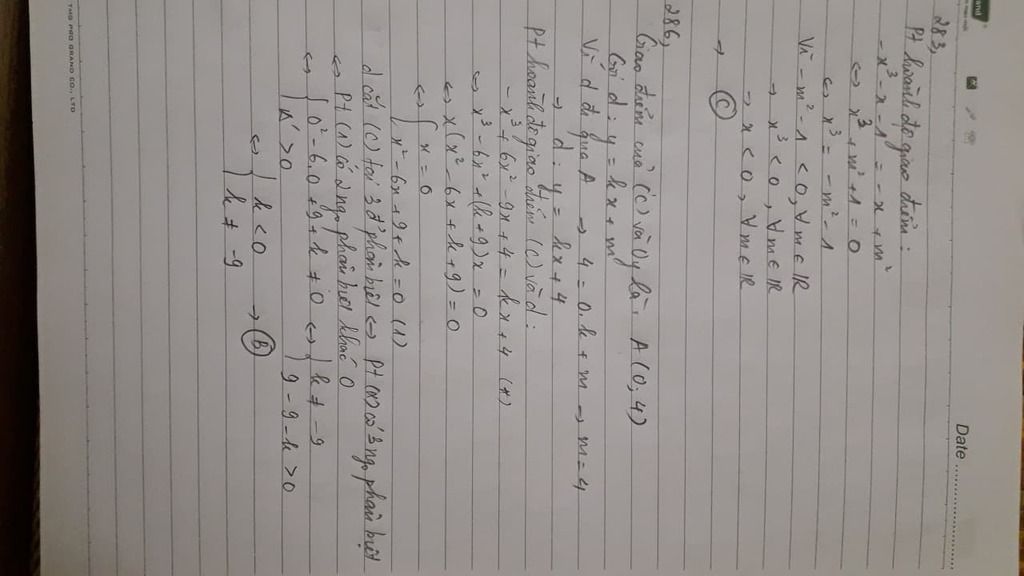 Date
283,
Pt hoành độ giao điểm:
-x³ - x - 1 = -x + m²
⇔ x³ + m² + 1 = 0
⇔ x³ = -m² - 1
Vì -m² - 1 < 0, ∀m∈ℝ
→ x³ < 0, ∀m∈ℝ
→ x < 0, ∀m∈ℝ
→ Ⓒ
286,
Giao điểm của (C) và Oy là: A(0; 4)
Gọi d: y = kx + m
Vì d đi qua A → 4 = 0.k + m → m = 4
→ d: y = kx + 4
Pt hoành độ giao điểm (C) và d:
-x³ + 6x² - 9x + 4 = kx + 4 (*)
⇔ x³ - 6x² + (k+9)x = 0
⇔ x(x² - 6x + k + 9) = 0
⇔ { x = 0
x² - 6x + 9 + k = 0 (1)
d cắt (C) tại 3 đ' phân biệt ⇔ Pt (*) có 3 ngo phân biệt
⇔ Pt (1) có 2 ngo phân biệt khác 0
⇔ { 0² - 6.0 + 9 + k ≠ 0 ⇔ { k ≠ -9
Δ' > 0 9 - 9 - k > 0
⇔ { k < 0 → ⓑ
k ≠ -9
THE PRO GRAND CO., LTD